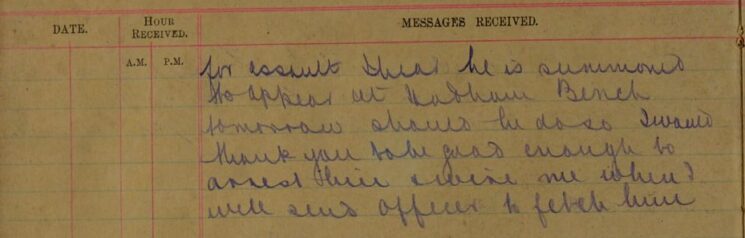 DATE.
HOUR RECEIVED.
MESSAGES RECEIVED.
A.M. P.M.
for assault I hear he is summoned
to appear at Hadham Bench
tomorrow should he do so I would
thank you to be good enough to
arrest him & wire me when I
will send officer to fetch him